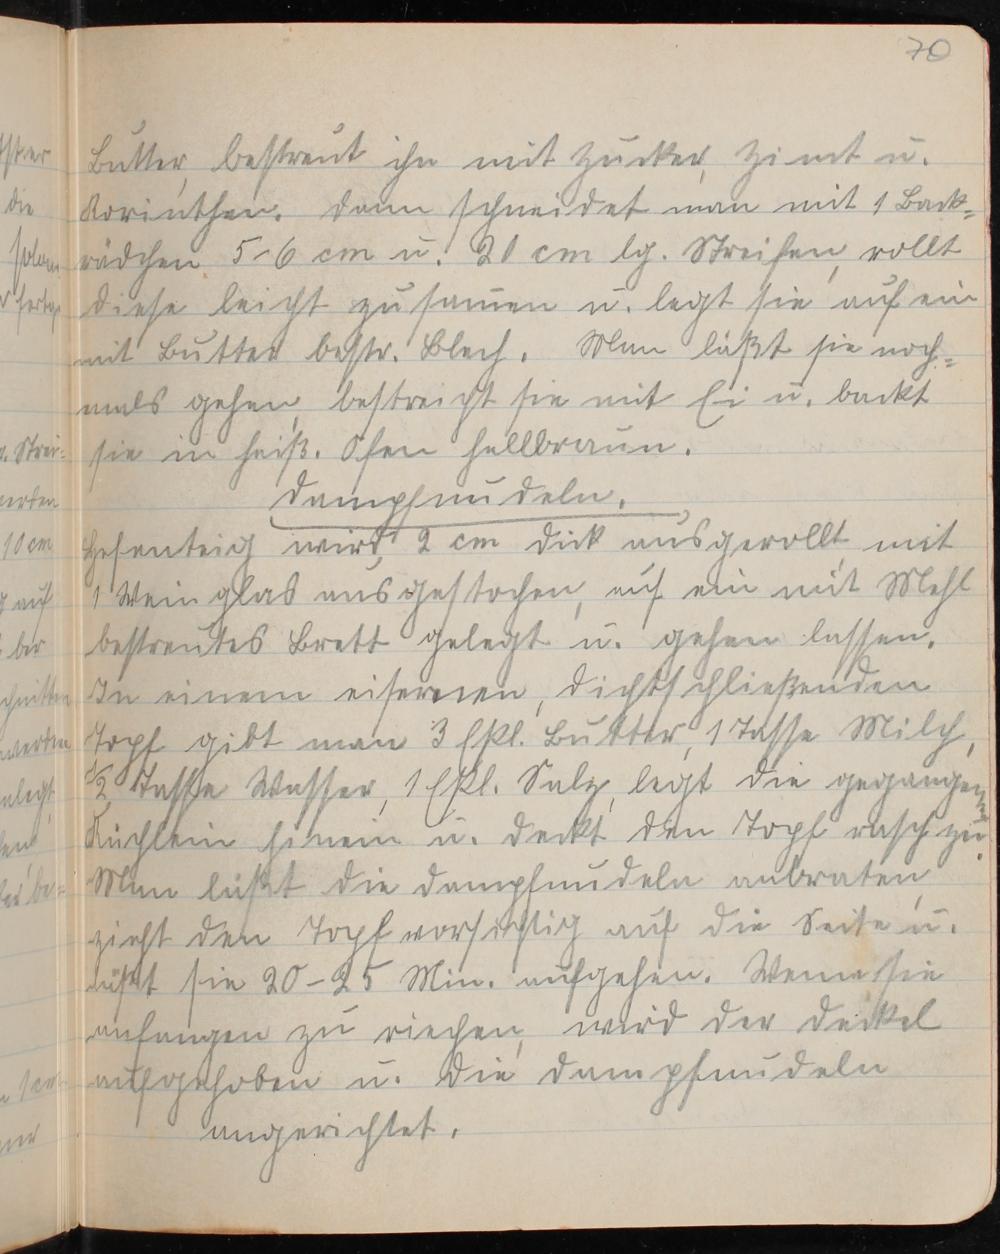 70
Butter, bestreut ihn mit Zucker, Zimt u.
Korinthen. Dann schneidet man mit 1 Back-
rädchen 5-6 cm u. 20 cm lg. Streifen, rollt
diese leicht zusam̄en u. legt sie auf ein
mit Butter bestr. Blech. Man läßt sie noch-
mals gehen, bestreicht sie mit Ei u. backt
sie in heiß. Ofen hellbraun.
Dampfnudeln.
Hefenteig wird 2 cm dick ausgerollt, mit
1 Weinglas ausgestochen, auf ein mit Mehl
bestreutes Brett gelegt u. gehen lassen.
In einem eisernen, dichtschließenden
Topf gibt man 3 Eßl. Butter, 1 Tasse Milch,
1/2 Tasse Wasser, 1 Eßl. Salz, legt die gegangenen
Küchlein hinein u. deckt den Topf rasch zu.
Man läßt die Dampfnudeln anbraten,
zieht den Topf vorsichtig auf die Seite u.
läßt sie 20-25 Min. aufgehen. Wenn sie
anfangen zu riechen, wird der Deckel
aufgehoben u. die Dampfnudeln
angerichtet.